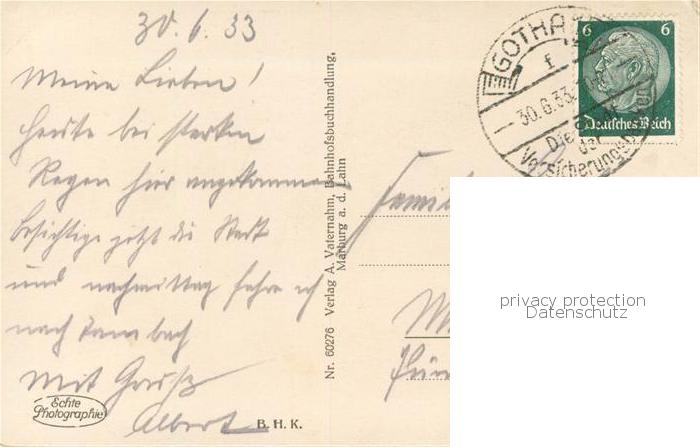 30.6.33
Meine Lieben!
Heute bei starken
Regen hier angekommen
besichtige jetzt die Stadt
und nachmittag fahre ich
nach Tambach
Mit Gruß
Albert
Echte
Photographie
B.H.K.
Nr. 60276 Verlag A. Vaternahm, Bahnhofsbuchhandlung,
Marburg a. d. Lahn
GOTHA
30.6.33
Die
der
Versicherungs
6 6
Deutsches Reich
Famil
privacy protection
Datenschutz